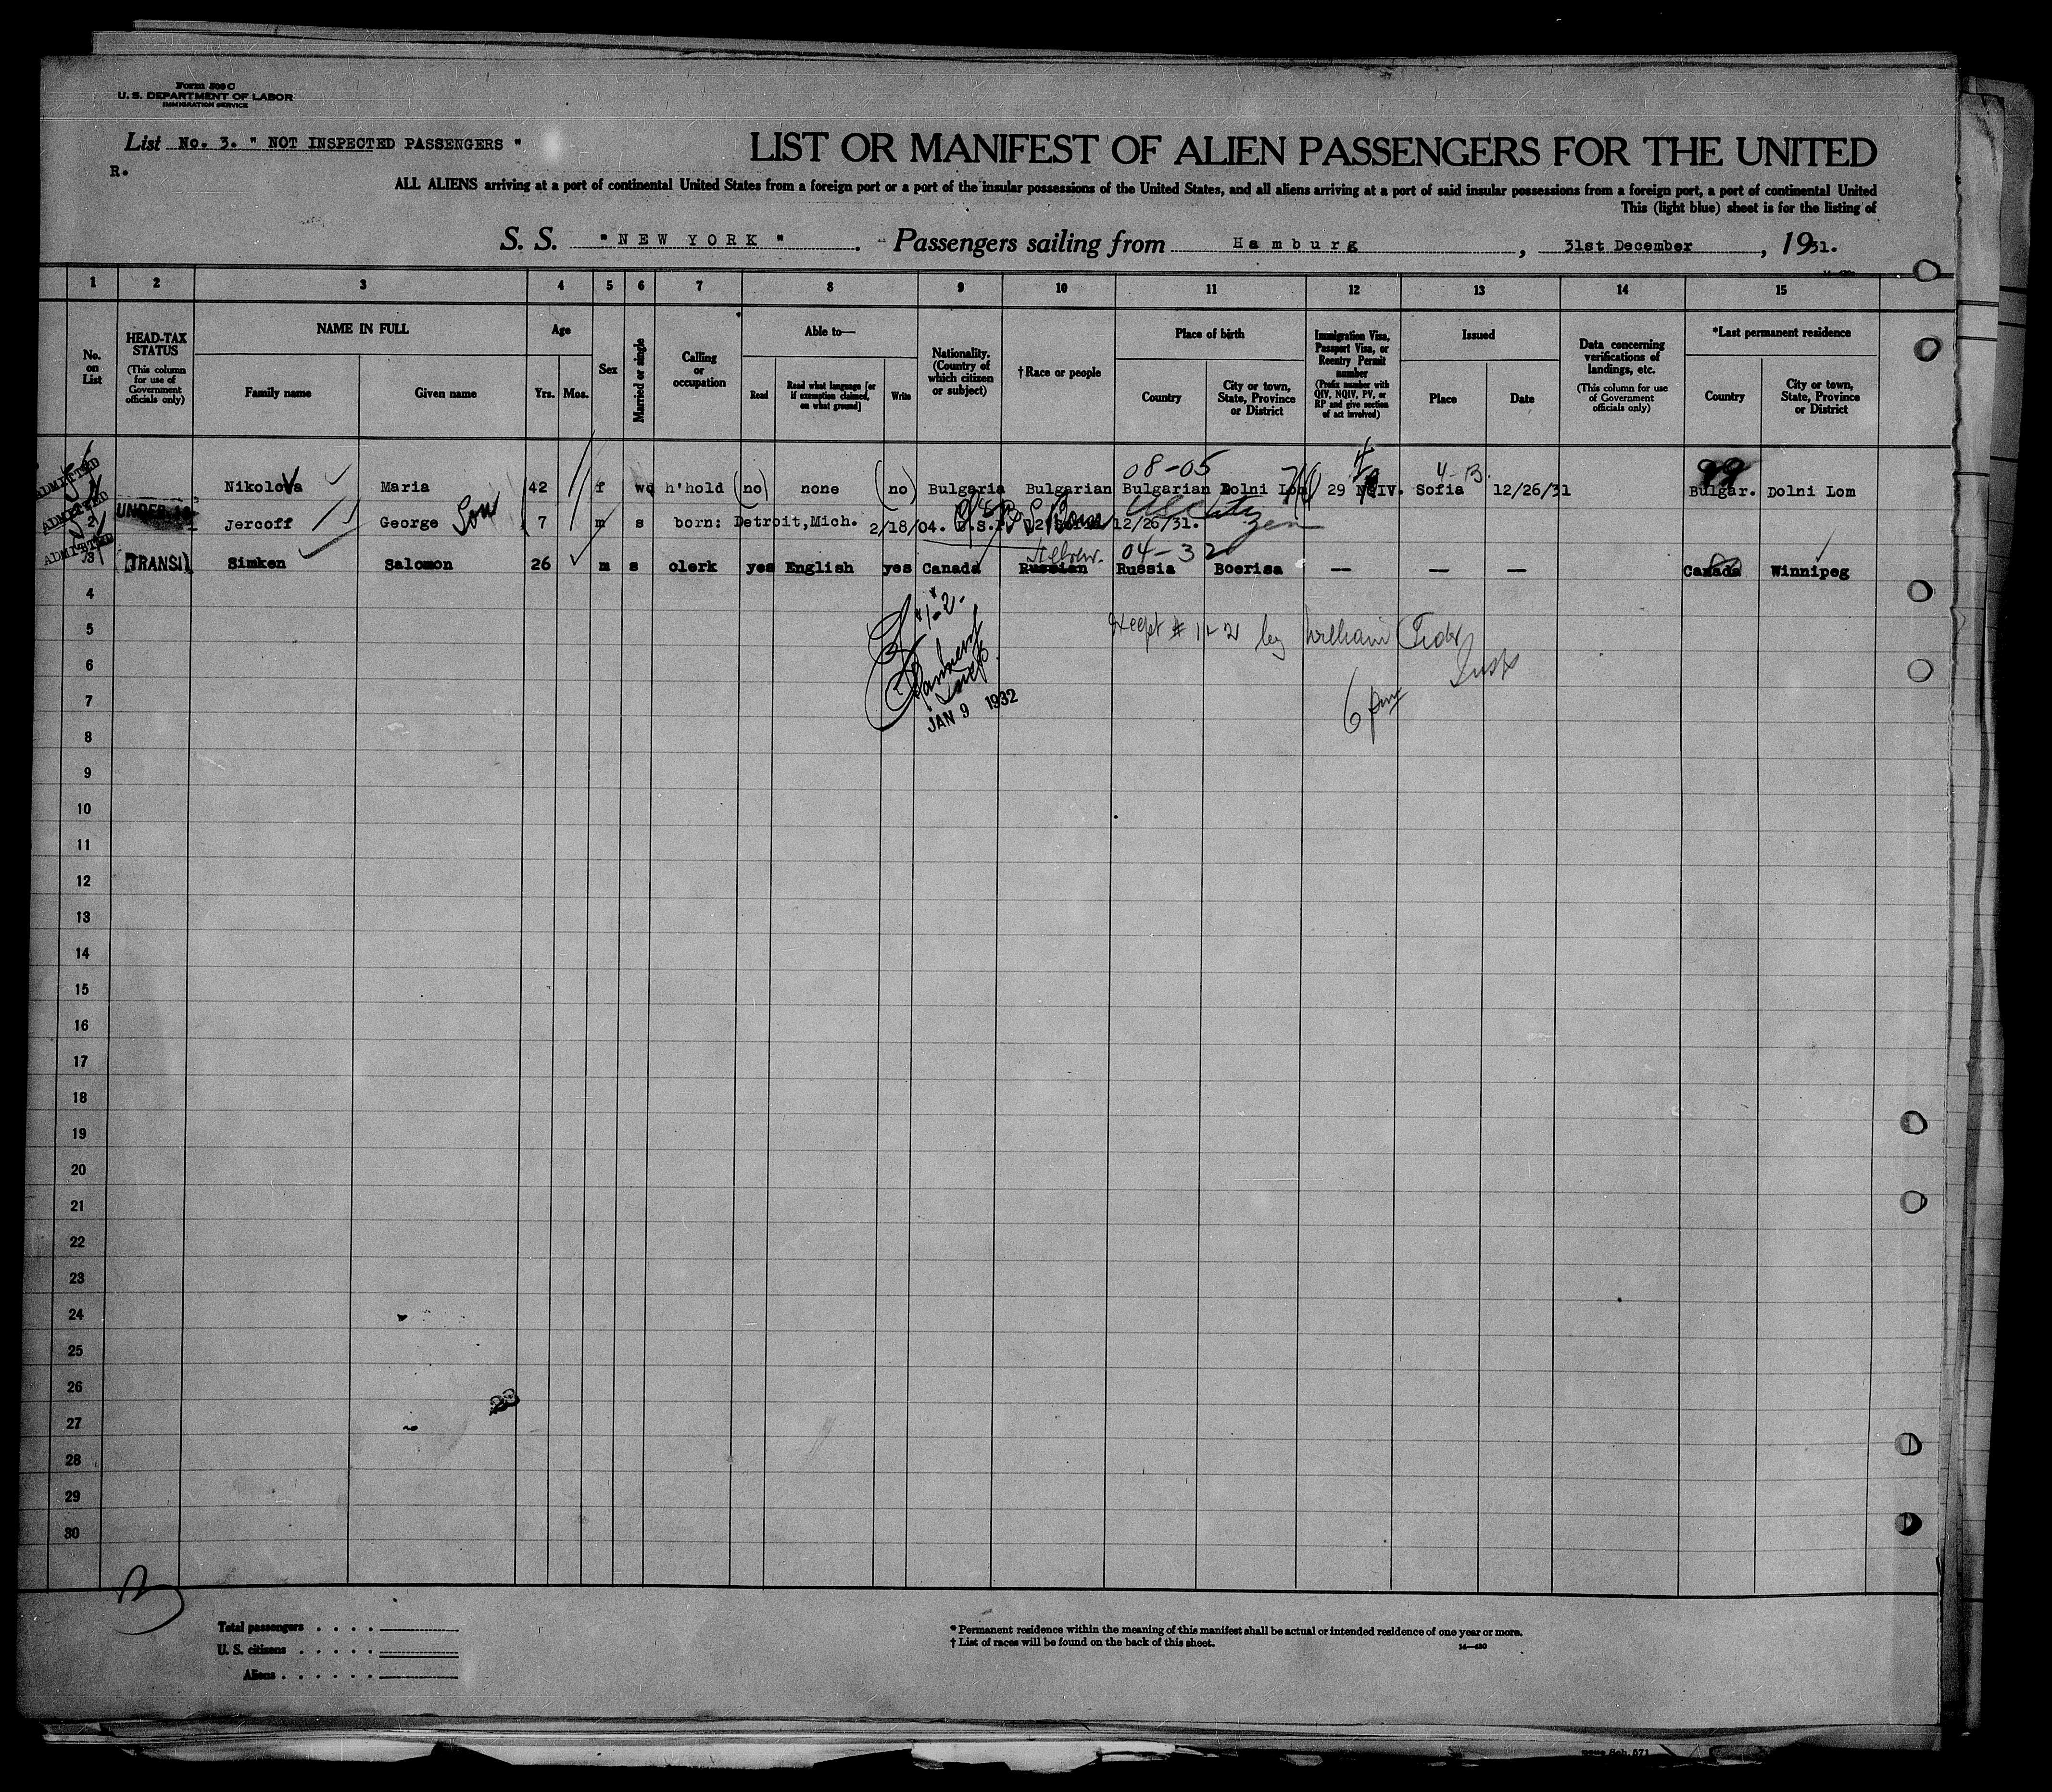 Form 500 C
U. S. DEPARTMENT OF LABOR
IMMIGRATION SERVICE
List No. 3. " NOT INSPECTED PASSENGERS "
R.
LIST OR MANIFEST OF ALIEN PASSENGERS FOR THE UNITED
ALL ALIENS arriving at a port of continental United States from a foreign port or a port of the insular possessions of the United States, and all aliens arriving at a port of said insular possessions from a foreign port, a port of continental United
This (light blue) sheet is for the listing of
S. S. " NEW YORK " . Passengers sailing from Hamburg , 31st December , 1931.
1 2 3 4 5 6 7 8 9 10 11 12 13 14 15
No. on List
HEAD-TAX STATUS (This column for use of Government officials only)
NAME IN FULL
Family name
Given name
Age
Yrs.
Mos.
Sex
Married or single
Calling or occupation
Able to—
Read
Read what language [or if exemption claimed, on what ground]
Write
Nationality. (Country of which citizen or subject)
†Race or people
Place of birth
Country
City or town, State, Province or District
Immigration Visa, Passport Visa, or Reentry Permit number (Prefix number with QIV, NQIV, PV, or RP and give section of act involved)
Issued
Place
Date
Data concerning verifications of landings, etc. (This column for use of Government officials only)
*Last permanent residence
Country
City or town, State, Province or District
08-05
ADMITTED Nikolova Maria 42 f wd h'hold (no) none (no) Bulgaria Bulgarian Bulgarian Dolni Lom 29 NQIV. Sofia 12/26/31 Bulgar. Dolni Lom
ADMITTED 2 UNDER 16 Jercoff George Son 7 m s born: Detroit,Mich. 2/18/04. 12/26/31. US Citizen
Hebrew. 04-32
ADMITTED 3 TRANSIT Simken Salomon 26 m s clerk yes English yes Canada Russian Russia Boerisa — — — Canada Winnipeg
4
# 1-2
5
# 1-2 by William
6
Insp
7
6 pm
JAN 9 1932
8
9
10
11
12
13
14
15
16
17
18
19
20
21
22
23
24
25
26
27
28
29
30
Total passengers
U. S. citizens
Aliens
* Permanent residence within the meaning of this manifest shall be actual or intended residence of one year or more.
† List of races will be found on the back of this sheet.
14—430